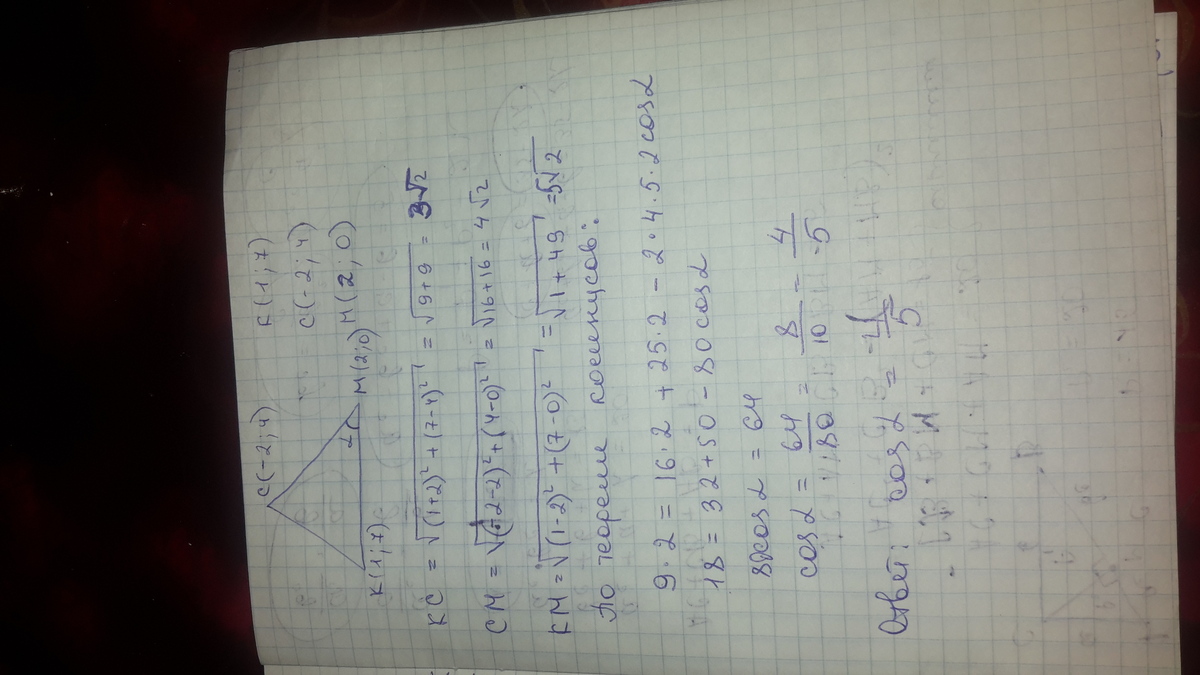 C(-2;4)
K(1;7)
α
M(2;0)
K(1;7)
C(-2;4)
M(2;0)
KC = √(1+2)² + (7-4)² = √9+9 = 3√2
CM = √(-2-2)² + (4-0)² = √16+16 = 4√2
KM = √(1-2)² + (7-0)² = √1+49 = 5√2
По теореме косинусов:
9·2 = 16·2 + 25·2 - 2·4·5·2 cosα
18 = 32+50 - 80 cosα
80cosα = 64
cosα = 64/80 = 8/10 = 4/5
Ответ: cosα = 4/5